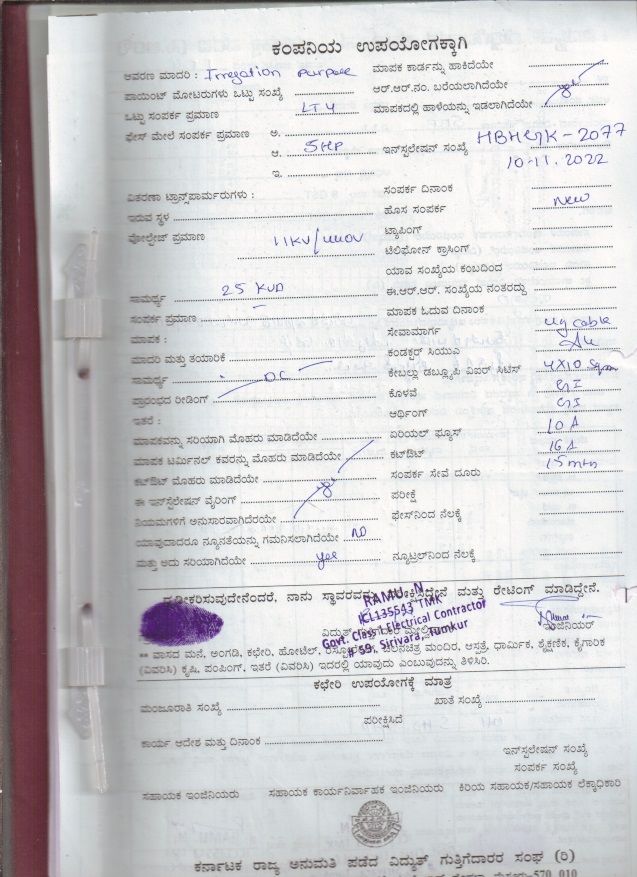 ಕಂಪನಿಯ ಉಪಯೋಗಕ್ಕಾಗಿ
ಆವರಣ ಮಾದರಿ : Irregation purpose ಮಾಪಕ ಕಾರ್ಡನ್ನು ಹಾಕಿದೆಯೇ
ಪಾಯಿಂಟ್ ಮೋಟರುಗಳು ಒಟ್ಟು ಸಂಖ್ಯೆ ಆರ್.ಆರ್.ನಂ. ಬರೆಯಲಾಗಿದೆಯೇ yes
ಒಟ್ಟು ಸಂಪರ್ಕ ಪ್ರಮಾಣ LT 4 ಮಾಪಕದಲ್ಲಿ ಹಾಳೆಯನ್ನು ಇಡಲಾಗಿದೆಯೇ
ಫೇಸ್ ಮೇಲೆ ಸಂಪರ್ಕ ಪ್ರಮಾಣ ಅ.
ಆ. 5HP ಇನ್‌ಸ್ಟಲೇಷನ್ ಸಂಖ್ಯೆ - 2077
ಇ. 10-11.2022
ವಿತರಣಾ ಟ್ರಾನ್ಸ್‌ಫಾರ್ಮರುಗಳು : ಸಂಪರ್ಕ ದಿನಾಂಕ
ಇರುವ ಸ್ಥಳ ಹೊಸ ಸಂಪರ್ಕ New
ವೋಲ್ಟೇಜ್ ಪ್ರಮಾಣ 11KV/440V ಟ್ಯಾಪಿಂಗ್
ಟೆಲಿಫೋನ್ ಕ್ರಾಸಿಂಗ್
ಯಾವ ಸಂಖ್ಯೆಯ ಕಂಬದಿಂದ
ಸಾಮರ್ಥ್ಯ 25 KVA ಈ.ಆರ್.ಆರ್. ಸಂಖ್ಯೆಯ ನಂತರದ್ದು
ಸಂಪರ್ಕ ಪ್ರಮಾಣ ಮಾಪಕ ಓದುವ ದಿನಾಂಕ
ಮಾಪಕ : ಸೇವಾಮಾರ್ಗ ug cable
ಮಾದರಿ ಮತ್ತು ತಯಾರಿಕೆ ಕಂಡಕ್ಟರ್ ಸಿಯುಎ
ಸಾಮರ್ಥ್ಯ D.C ಕೇಬಲ್ಲು ಡಬ್ಲ್ಯೂಪಿ ವಿಐರ್ ಸಿಟಿಸ್ 4X10 Sqmm
ಪ್ರಾರಂಭದ ರೀಡಿಂಗ್ ಕೊಳವೆ GI
ಇತರೆ : ಆರ್ಥಿಂಗ್ GI
ಮಾಪಕವನ್ನು ಸರಿಯಾಗಿ ಮೊಹರು ಮಾಡಿದೆಯೇ ಏರಿಯಲ್ ಫ್ಯೂಸ್ 10 A
ಮಾಪಕ ಟರ್ಮಿನಲ್ ಕವರನ್ನು ಮೊಹರು ಮಾಡಿದೆಯೇ ಕಟ್‌ಔಟ್ 16 A
ಕಟ್‌ಔಟ್ ಮೊಹರು ಮಾಡಿದೆಯೇ yes ಸಂಪರ್ಕ ಸೇವೆ ದೂರು 15 mtr
ಈ ಇನ್‌ಸ್ಟಲೇಷನ್ ವೈರಿಂಗ್ ಪರೀಕ್ಷೆ
ನಿಯಮಗಳಿಗೆ ಅನುಸಾರವಾಗಿದೆರಯೇ ಫೇಸ್‌ನಿಂದ ನೆಲಕ್ಕೆ
ಯಾವುದಾದರೂ ನ್ಯೂನತೆಯನ್ನು ಗಮನಿಸಲಾಗಿದೆಯೇ NO
ಮತ್ತು ಅದು ಸರಿಯಾಗಿದೆಯೇ yes ನ್ಯೂಟ್ರಲ್‌ನಿಂದ ನೆಲಕ್ಕೆ
ದೃಢೀಕರಿಸುವುದೇನೆಂದರೆ, ನಾನು ಸ್ಥಾವರವನ್ನು ಮತ್ತು ರೇಟಿಂಗ್ ಮಾಡಿದ್ದೇನೆ.
RAMU. N
ICL135593 TMK
Govt. Class 1 Electrical Contractor
# 59, Sirivara, Tumkur
ವಿದ್ಯುತ್ ಇಂಜಿನಿಯರ್
** ವಾಸದ ಮನೆ, ಅಂಗಡಿ, ಕಛೇರಿ, ಹೋಟೆಲ್, ಮಂದಿರ, ಆಸ್ಪತ್ರೆ, ಧಾರ್ಮಿಕ, ಶೈಕ್ಷಣಿಕ, ಕೈಗಾರಿಕ
(ವಿವರಿಸಿ) ಕೃಷಿ, ಪಂಪಿಂಗ್, ಇತರೆ (ವಿವರಿಸಿ) ಇದರಲ್ಲಿ ಯಾವುದು ಎಂಬುವುದನ್ನು ತಿಳಿಸಿರಿ.
ಕಛೇರಿ ಉಪಯೋಗಕ್ಕೆ ಮಾತ್ರ
ಮಂಜೂರಾತಿ ಸಂಖ್ಯೆ ಖಾತೆ ಸಂಖ್ಯೆ
ಪರೀಕ್ಷಿಸಿದೆ
ಕಾರ್ಯ ಆದೇಶ ಮತ್ತು ದಿನಾಂಕ
ಇನ್‌ಸ್ಟಲೇಷನ್ ಸಂಖ್ಯೆ
ಸಂಪರ್ಕ ಸಂಖ್ಯೆ
ಸಹಾಯಕ ಇಂಜಿನಿಯರು ಸಹಾಯಕ ಕಾರ್ಯನಿರ್ವಾಹಕ ಇಂಜಿನಿಯರು ಕಿರಿಯ ಸಹಾಯಕ/ಸಹಾಯಕ ಲೆಕ್ಕಾಧಿಕಾರಿ
ಕರ್ನಾಟಕ ರಾಜ್ಯ ಅನುಮತಿ ಪಡೆದ ವಿದ್ಯುತ್ ಗುತ್ತಿಗೆದಾರರ ಸಂಘ (ರಿ)
570 010